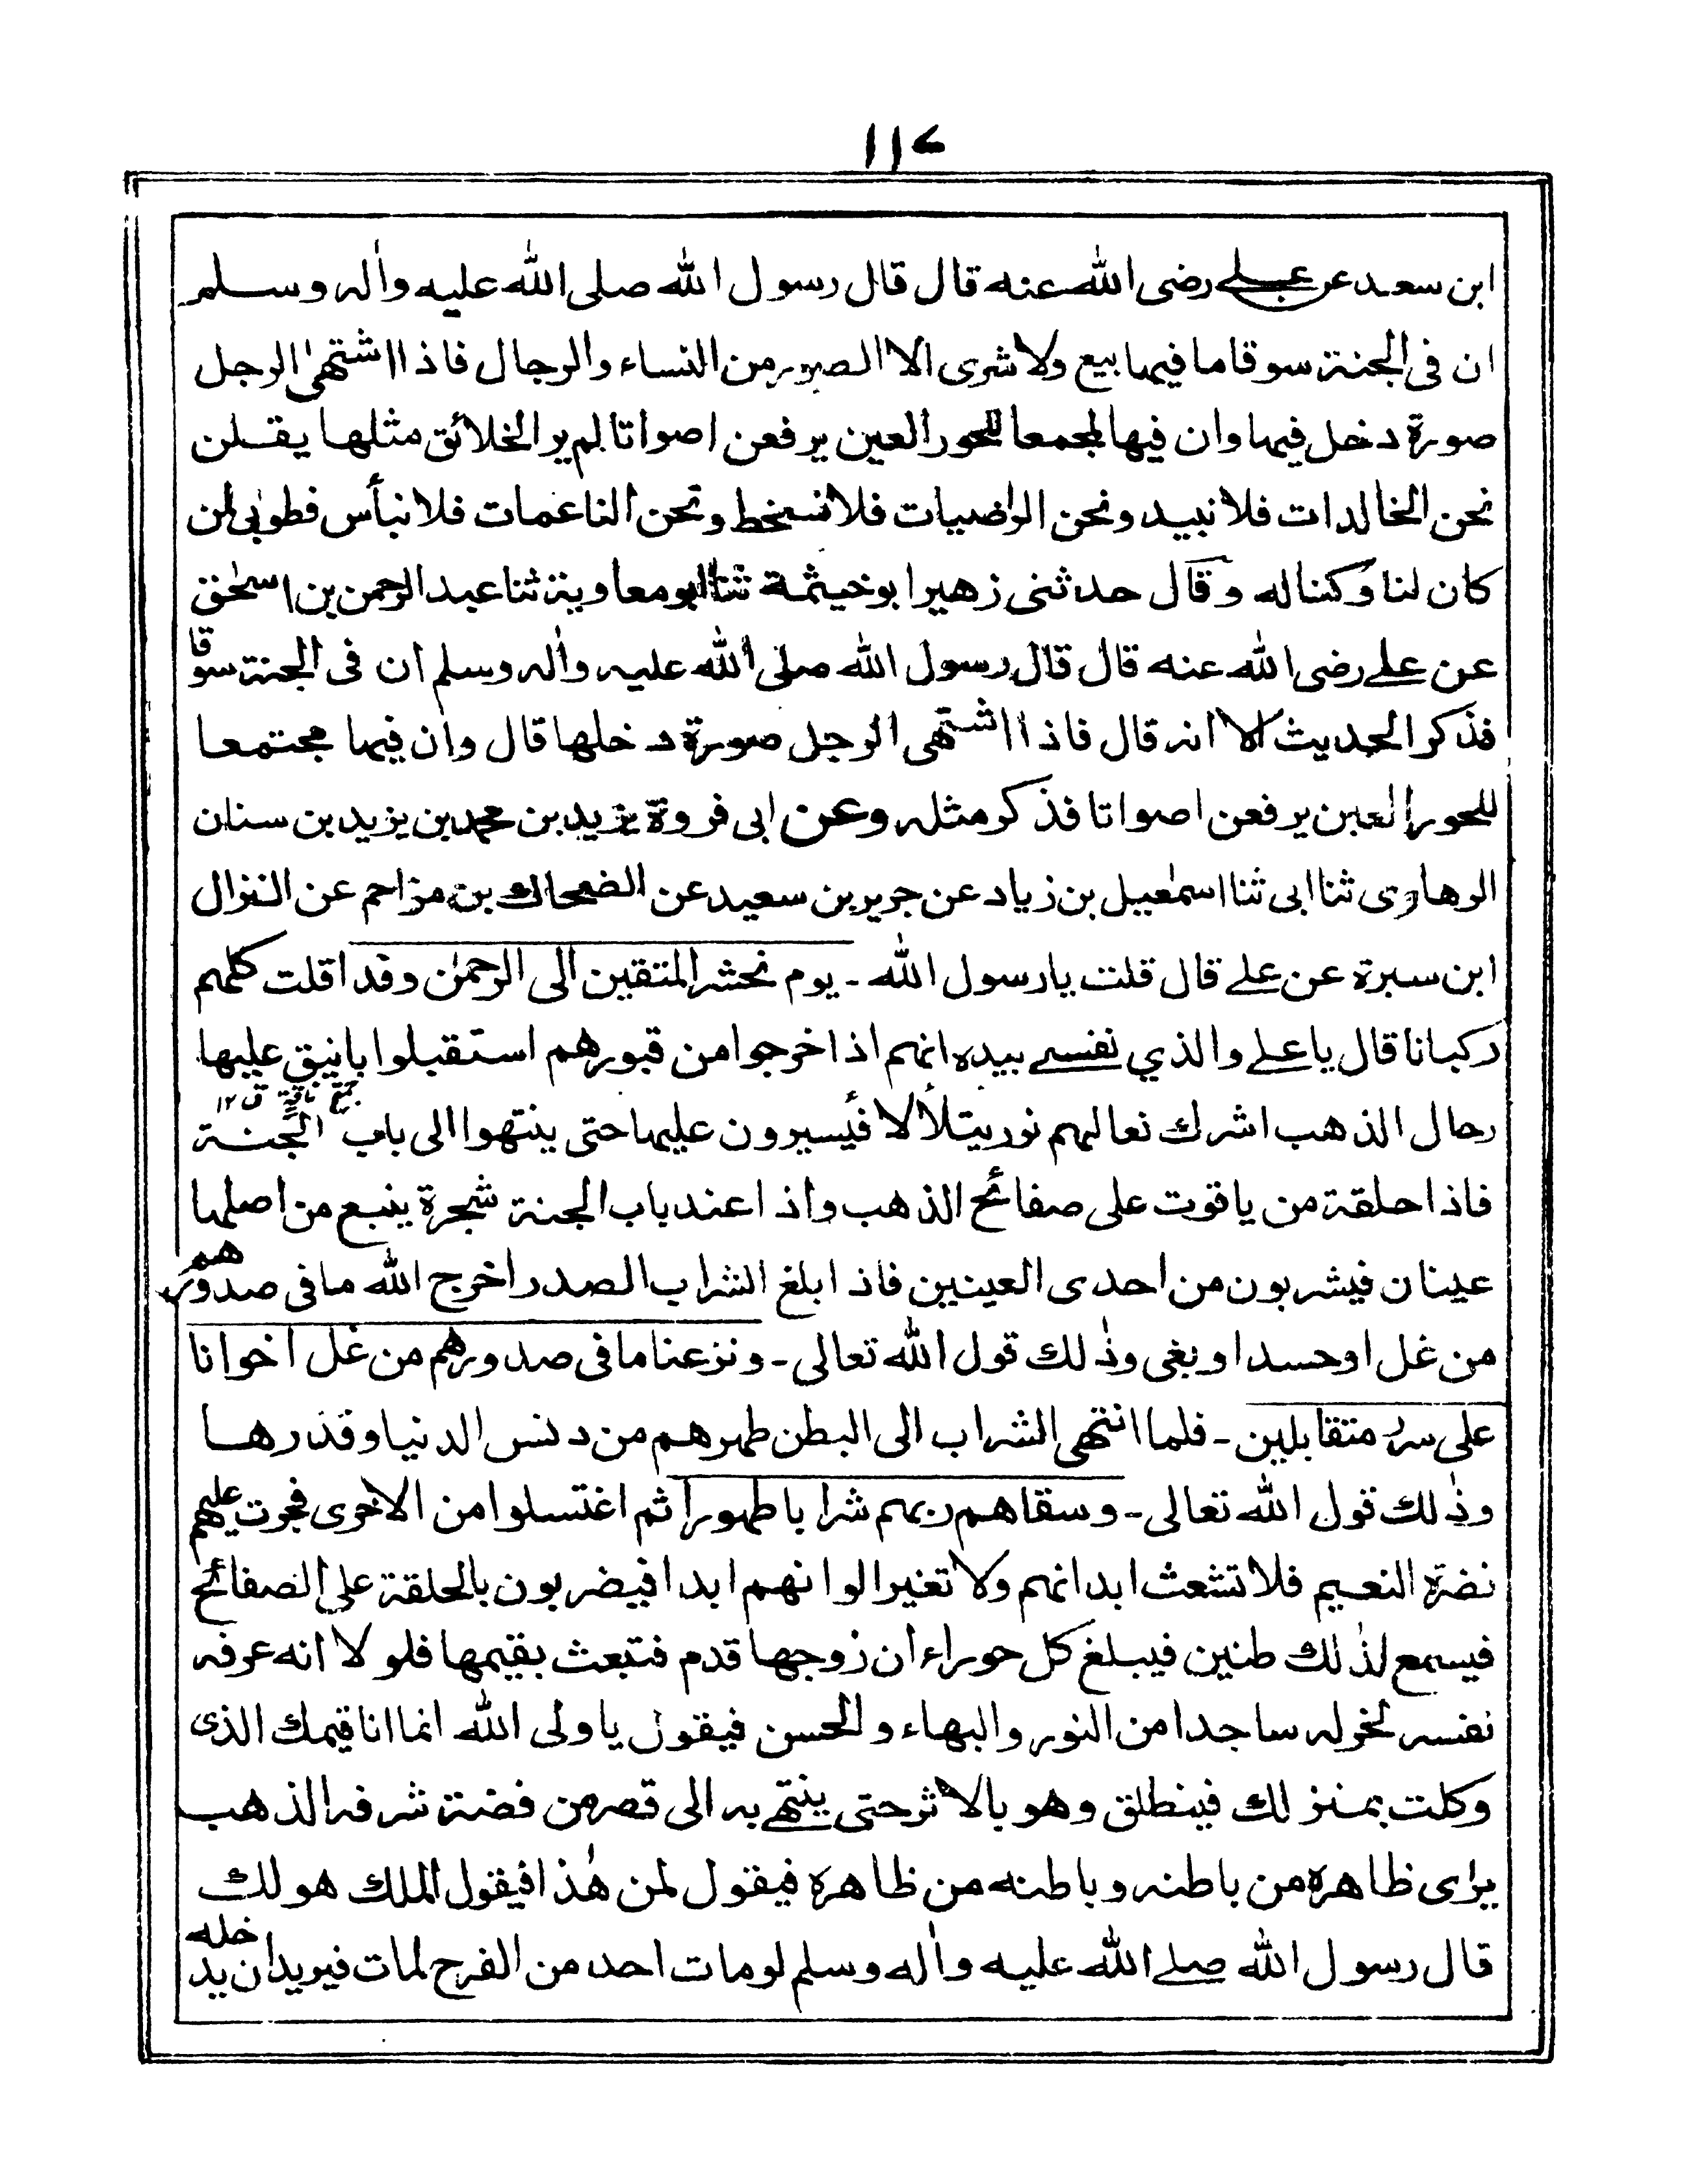 ١١٤
ابن سعيد عن علي رضى الله عنه قال قال رسول الله صلى الله عليه واٰله وسلم
ان فى الجنة سوقا ما فيها بيع ولا شرى الا الصور من النساء والرجال فاذا اشتهىٰ الرجل
صورة دخل فيها وان فيها لمجمعا للحور العين يرفعن اصواتا لم ير الخلائق مثلها يقلن
نحن الخالدات فلا نبيد ونحن الراضيات فلا نسخط ونحن الناعمات فلا نبأس فطوبىٰ لمن
كان لنا وكنا له وقال حدثنى زهير ابو خيثمة ثنا ابو معاوية ثنا عبد الرحمن بن اسحٰق
عن علے رضى الله عنه قال قال رسول الله صلى الله عليه واٰله وسلم ان فى الجنة سوقا
فذكر الحديث الا انه قال فاذا اشتهى الرجل صورة دخلها قال وان فيها مجتمعا
للحور العين يرفعن اصواتا فذكر مثله وعن ابى فروة يزيد بن محمد بن يزيد بن سنان
الرهاوى ثنا ابى ثنا اسمٰعيل بن زياد عن جرير بن سعيد عن الضحاك بن مزاحم عن النزال
ابن سبرة عن علے قال قلت يا رسول الله ـ يوم نحشر المتقين الى الرحمٰن وفدا قلت كلهم
ركبانا قال يا علے والذي نفسے بيده انهم اذا خرجوا من قبورهم استقبلوا بانيق عليها
جمع ناقة ق ١٢
رحال الذهب اشرك نعالهم نور يتلألا فيسيرون عليها حتى ينتهوا الى باب الجنة
فاذا حلقة من ياقوت على صفائح الذهب واذا عند باب الجنة شجرة ينبع من اصلها
عينان فيشربون من احدى العينين فاذا بلغ الشراب الصدر اخرج الله ما فى صدورهم
من غل او حسد او بغى وذٰلك قول الله تعالى ـ ونزعنا ما فى صدورهم من غل اخوانا
على سرر متقابلين ـ فلما انتهى الشراب الى البطن طهرهم من دنس الدنيا وقذرها
وذٰلك قول الله تعالى ـ وسقاهم ربهم شرابا طهورا ثم اغتسلوا من الاخرى فجرت عليهم
نضرة النعيم فلا تشعث ابدانهم ولا تغير الوانهم ابدا فيضربون بالحلقة على الصفائح
فيسمع لذٰلك طنين فيبلغ كل حوراء ان زوجها قدم فتبعث بقيمها فلو لا انه عرفه
نفسه لخر له ساجدا من النور والبهاء والحسن فيقول يا ولى الله انما انا قيمك الذى
وكلت بمنزلك فينطلق وهو بالاثر حتى ينتهے به الى قصر من فضة شرفه الذهب
يرى ظاهره من باطنه وباطنه من ظاهره فيقول لمن هٰذا فيقول الملك هو لك
قال رسول الله صلے الله عليه واٰله وسلم لو مات احد من الفرح لمات فيريد ان يدخله